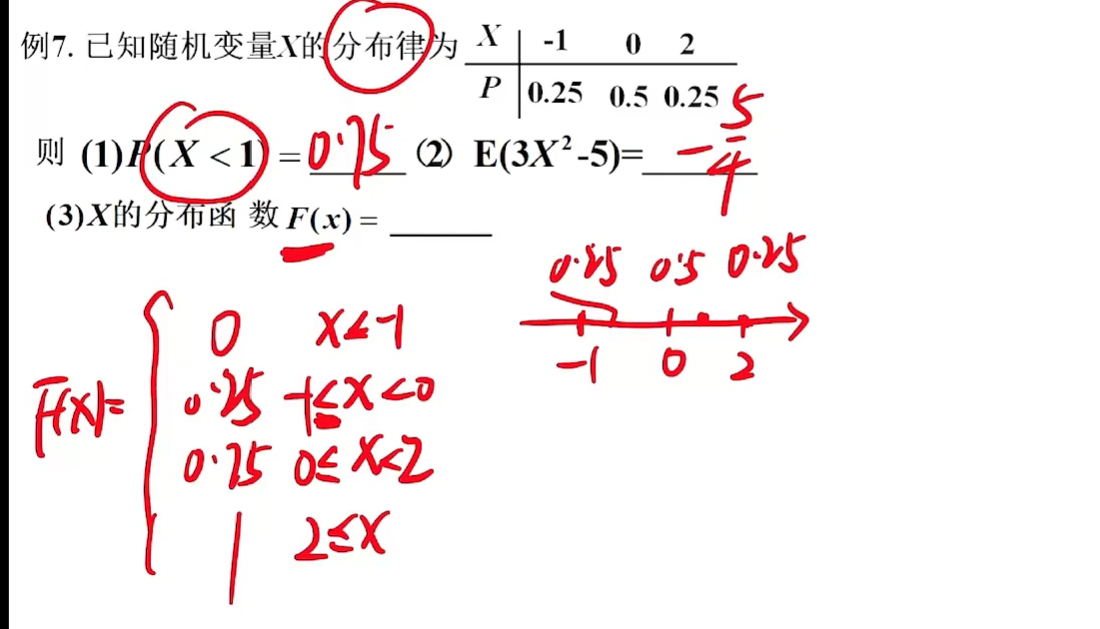 例7. 已知随机变量X的分布律为 X -1 0 2
P 0.25 0.5 0.25
则 (1)P(X<1)=0.75 (2) E(3X²-5)= -5/4
(3)X的分布函 数 F(x) = ______
0.25 0.5 0.25
-1 0 2
F(x)=
0 x<-1
0.25 -1≤x<0
0.75 0≤x<2
1 2≤x